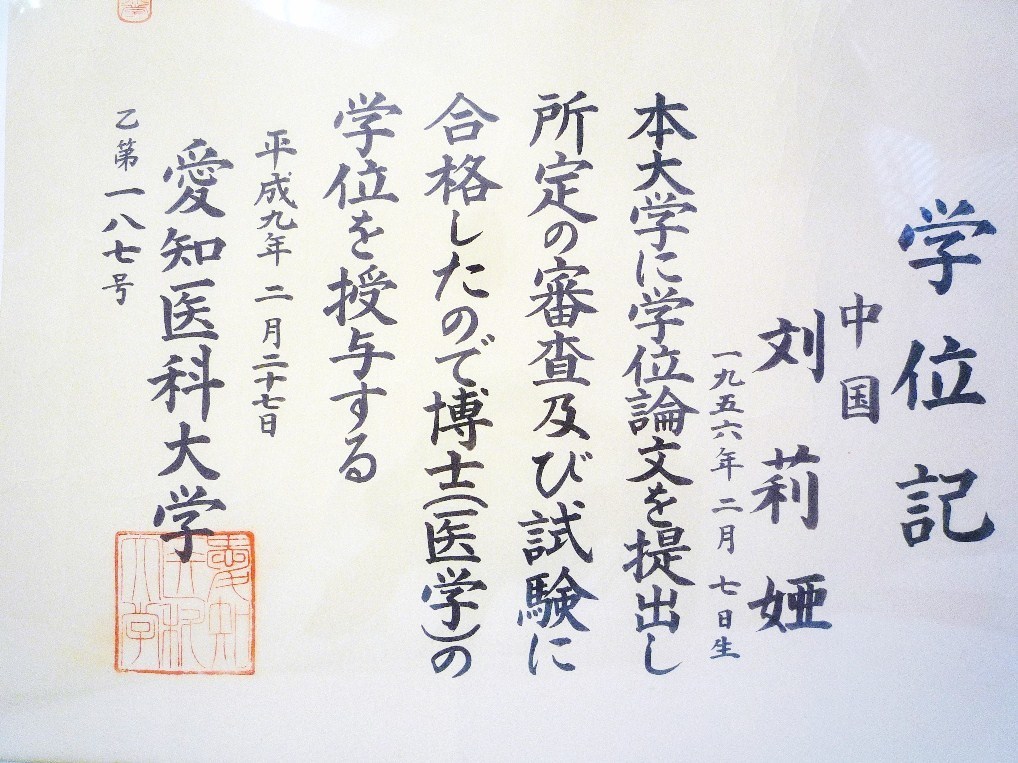 学位記
中国
刘莉娅
一九五六年二月七日生
本大学に学位論文を提出し
所定の審査及び試験に
合格したので博士(医学)の
学位を授与する
平成九年二月二十七日
愛知医科大学
乙第一八七号
愛知医科大学